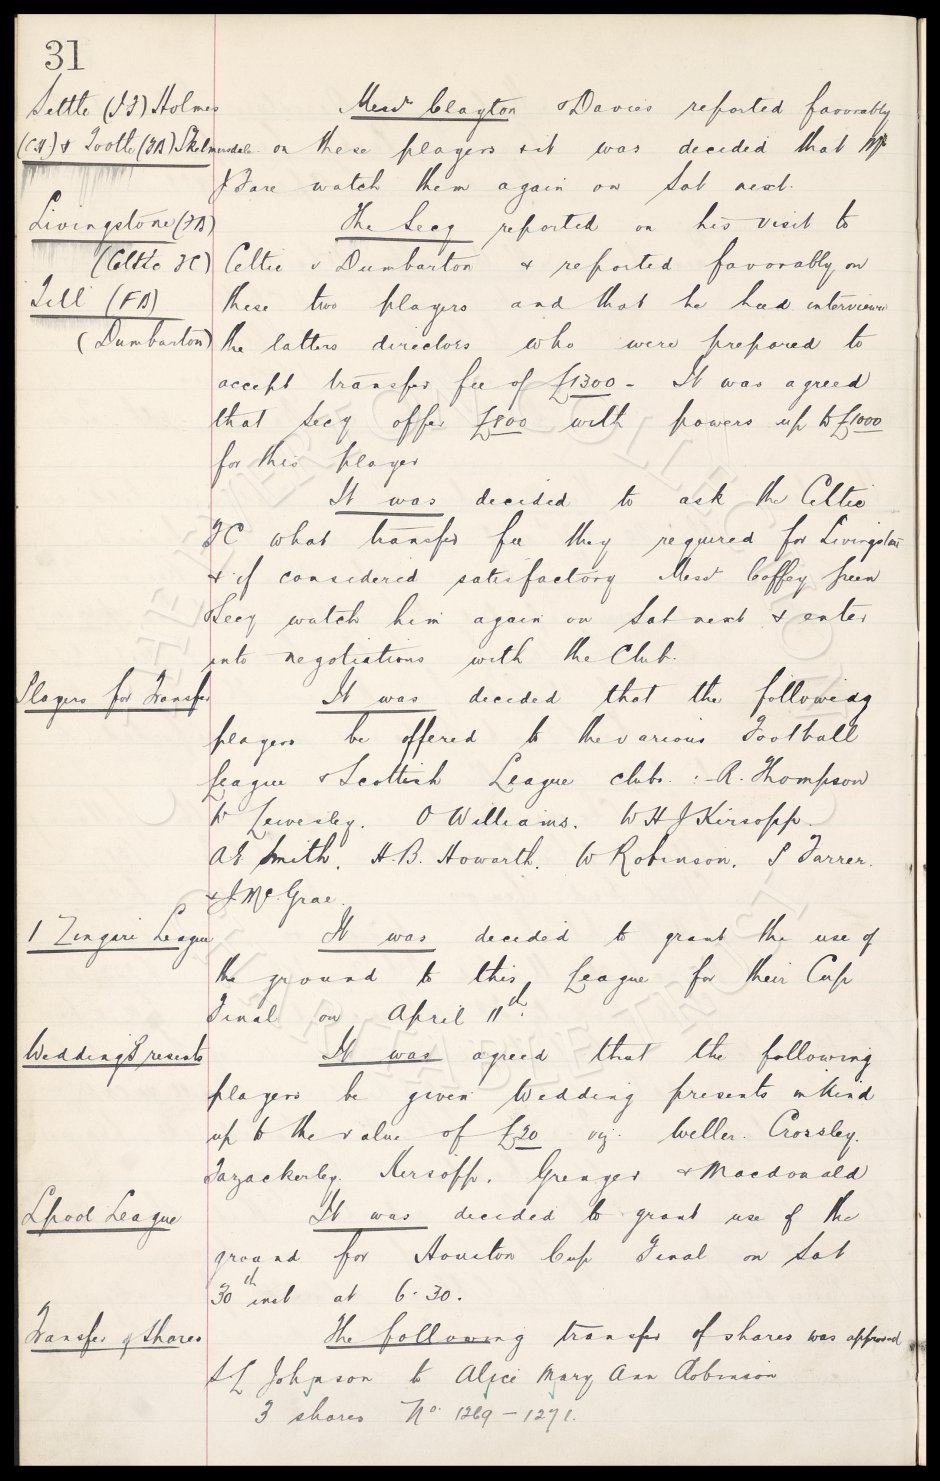 31
Settle (IF) Holmes
(CH) & Tootle (FB) Skelmersdale
Messrs Clayton & Davies reported favorably
on these players & it was decided that Mr
J Fare watch them again on Sat next.
Livingstone (FB)
(Celtic FC)
Tell (FB)
(Dumbarton)
The Secy reported on his visit to
Celtic v Dumbarton & reported favorably on
these two players and that he had interviewed
the latters directors who were prepared to
accept transfer fee of £1300 - It was agreed
that Secy offer £800 with powers up to £1000
for this player
It was decided to ask the Celtic
FC what transfer fee they required for Livingstone
& if considered satisfactory Messrs Coffey Green
Secy watch him again on Sat next & enter
into negotiations with the Club.
Players for Transfer
It was decided that the following
players be offered to the various Football
League & Scottish League clubs :- R. Thompson
W Lewesley. O Williams. W H J Kirsopp.
A E Smith. H. B. Howarth. W Robinson. S Farrer.
& J. McGrae.
I Zingari League
It was decided to grant the use of
the ground to this League for their Cup
Final on April 11th.
Wedding Presents
It was agreed that the following
players be given Wedding presents in kind
up to the value of £20 viz. Weller. Crossley.
Fazackerley. Kirsopp. Grenyer & Macdonald
Lpool League
It was decided to grant use of the
ground for Houston Cup Final on Sat
30th inst at 6.30.
Transfer of Shares
The following transfer of shares was approved
S L Johnson to Alice Mary Ann Robinson
3 shares No. 1269 - 1271.
THE EVERTON COLLECTION
CHARITABLE TRUST